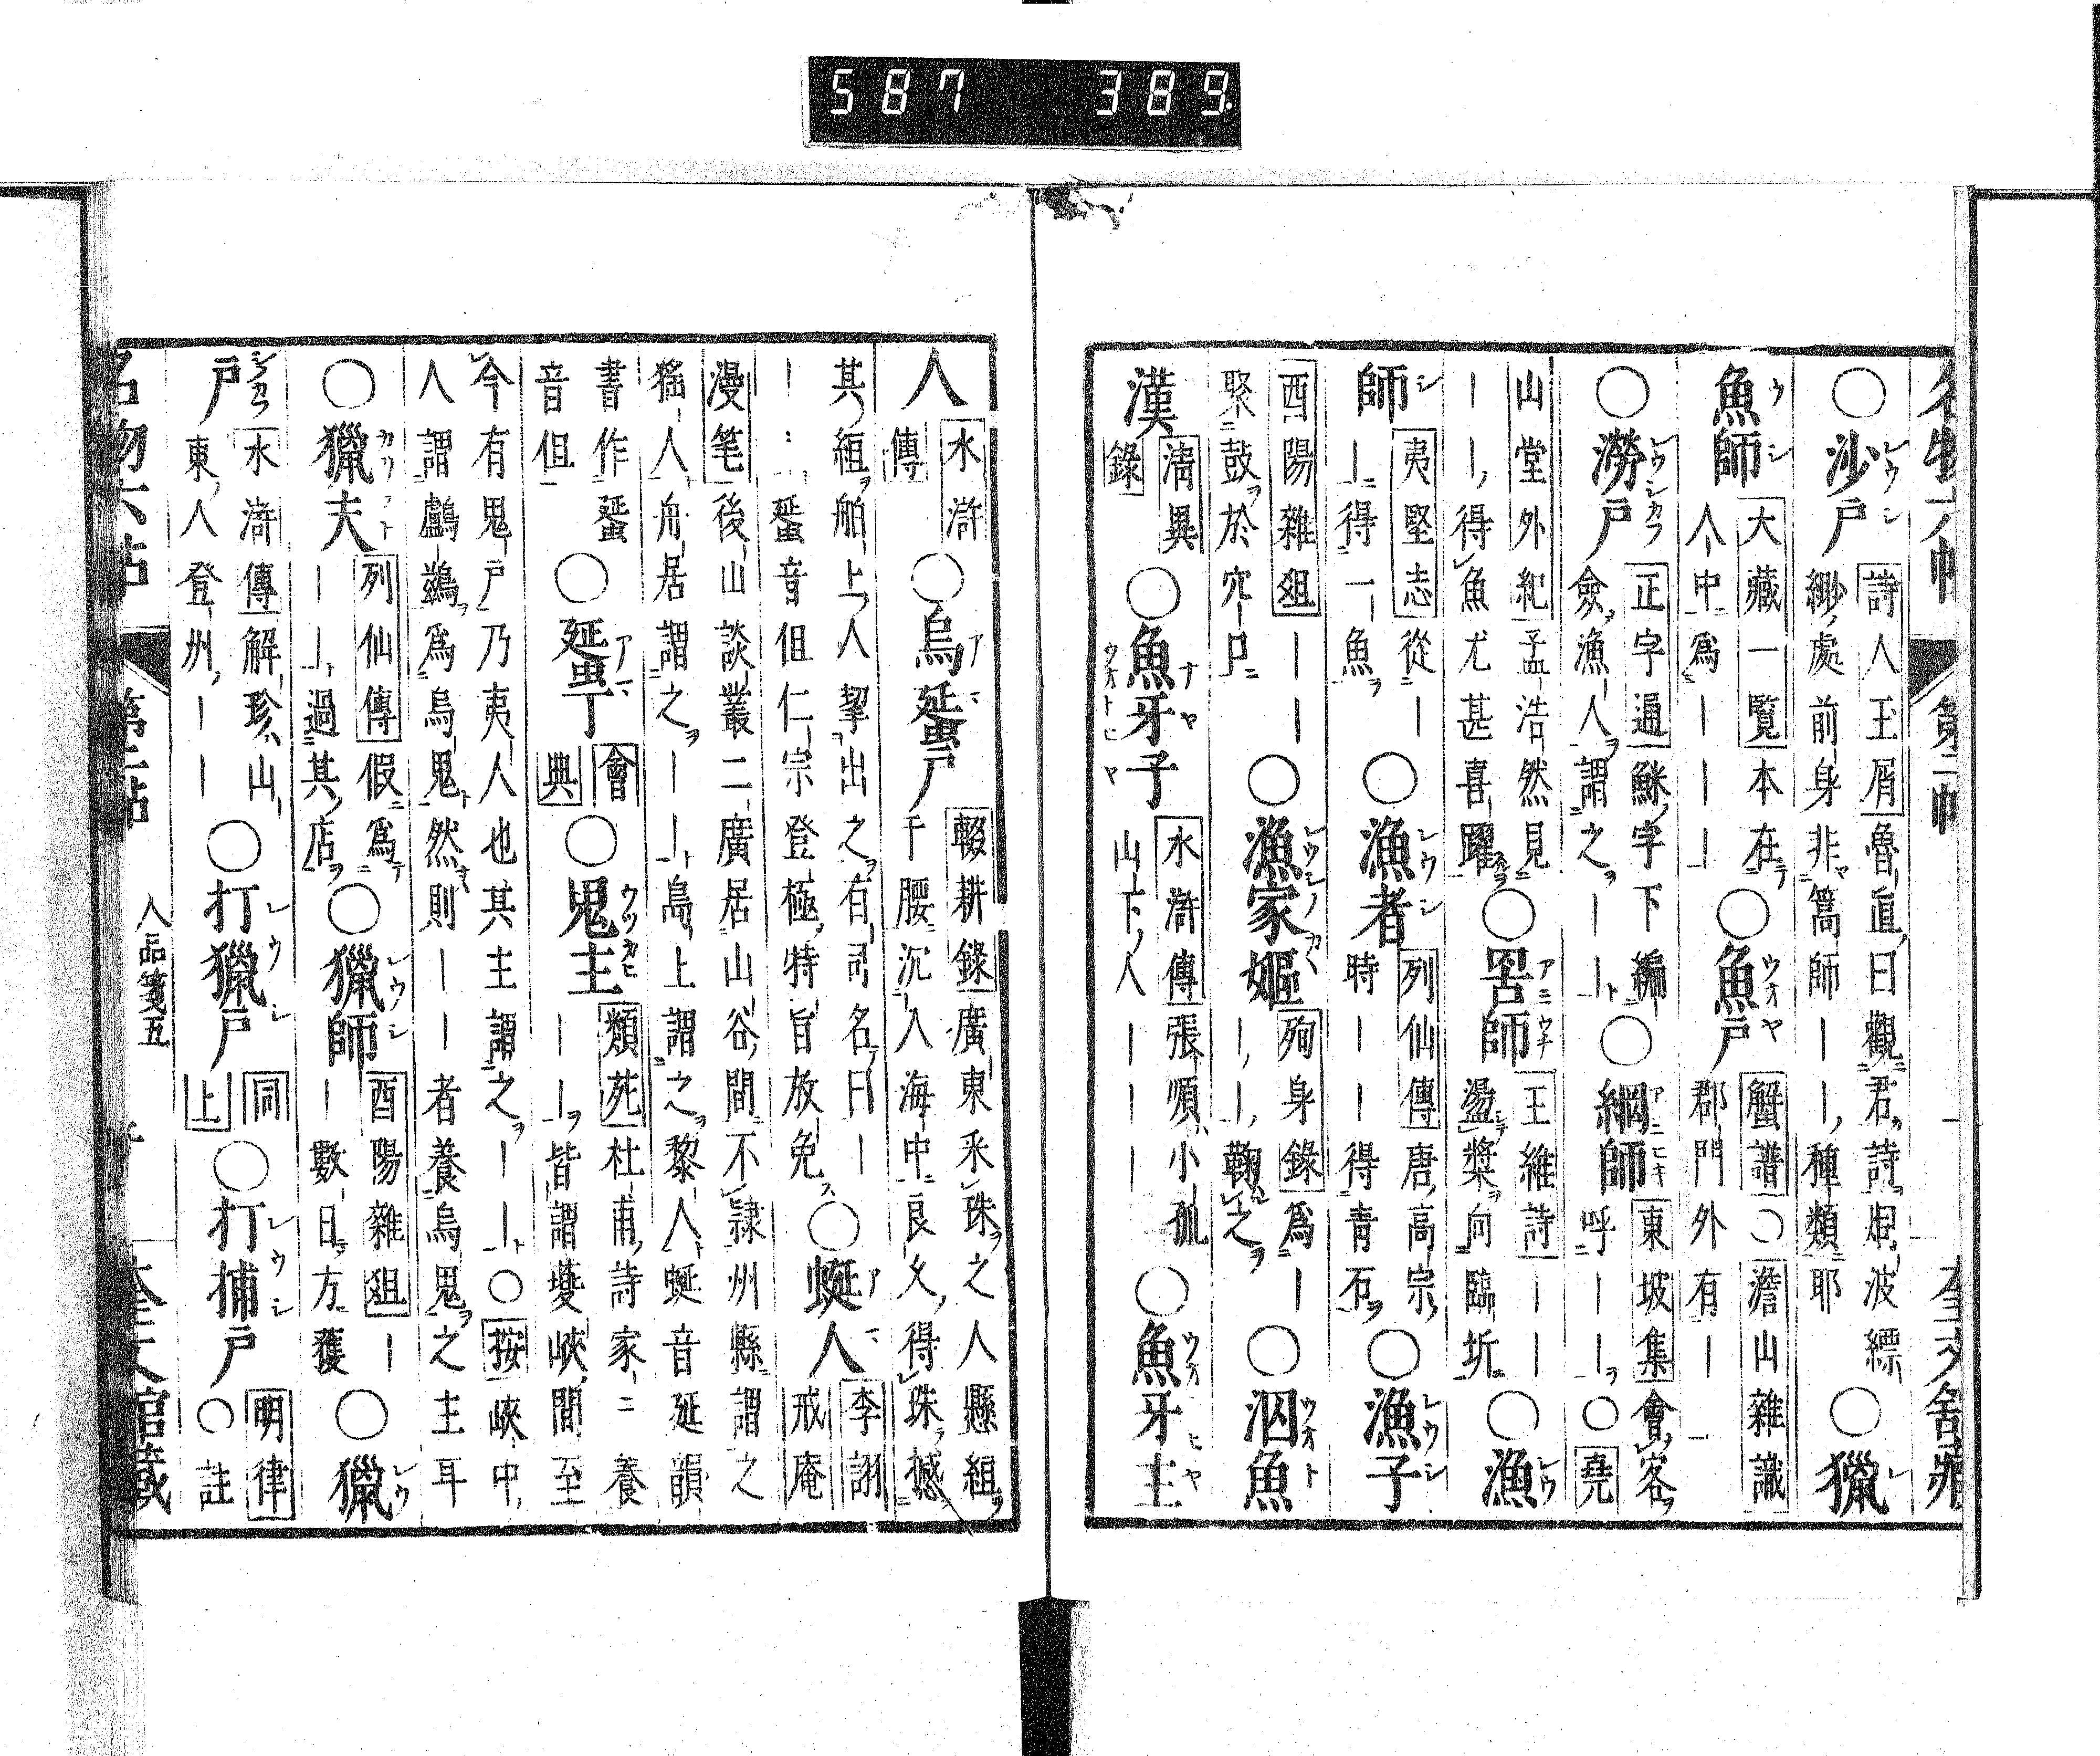 587 389
名物六帖 第二帖 奎文舘藏
○沙戶 詩人玉屑 魯直曰觀君詩烟波縹
緲處前身非篙師――種類耶 ○獵
魚師 大藏一覧 本在
人中爲―――― ○魚戶 蟹譜 ○ 澹山雜識
郡門外有―
○澇戶 正字通 鮇字下編
僉漁人謂之―― ○網師 東坡集 會客
呼――○堯
山堂外紀 孟浩然見
――得魚尤甚喜躍 ○罟師 王維詩 ――
盪槳向臨圻 ○漁
師 夷堅志 從―
―得一魚 ○漁者 列仙傳 唐高宗
時――得青石 ○漁子
酉陽雜俎 ――
聚鼓於穴口 ○漁家嫗 殉身錄 爲―
――鞠之 ○泅魚
漢 淸異
錄 ○魚牙子 水滸傳 張順小孤
山下人――― ○魚牙主
人 水滸
傳 ○烏蜑戶 輟耕錄 廣東采珠之人懸縆
千腰沉入海中良久得珠撼
其縆舶上人挈出之有司名曰―
――蜑音但仁宗登極特旨放免 ○蜒人 李詡
戒庵
漫笔 後山談叢二廣居山谷間不隷州縣謂之
猺人舟居謂之――島上謂之黎人蜒音延韻
書作蜑
音但 ○蜑丁 會
典 ○鬼主 類苑 杜甫詩家二養
――皆謂夔峽間至
今有鬼戶乃夷人也其主謂之――○按峽中
人謂鸕鷀爲烏鬼然則――者養烏鬼之主耳
○獵夫 列仙傳 假爲
――過其店 ○獵師 酉陽雜俎 ―
―數日方獲 ○獵
戶 水滸傳 解珍山
東人登州―― ○打獵戶 同
上 ○打捕戶 明律
○註
名物六帖 第二帖 人品箋五 奎文舘藏